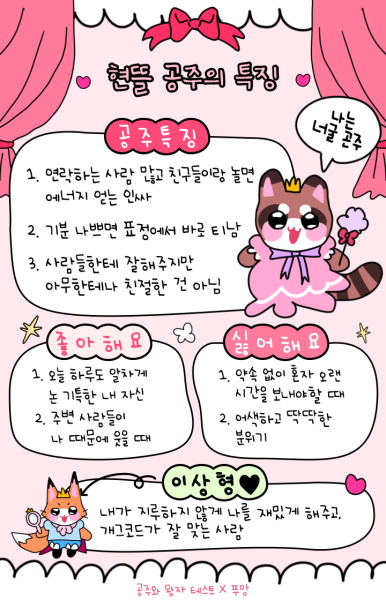 현뜰 공주의 특징
나는
너굴 공주
공주특징
1. 연락하는 사람 많고 친구들이랑 놀면
에너지 얻는 인싸
2. 기분 나쁘면 표정에서 바로 티남
3. 사람들한테 잘해주지만
아무한테나 친절한 건 아님
좋아해요
1. 오늘 하루도 알차게
논 기특한 내 자신
2. 주변 사람들이
나 때문에 웃을 때
싫어해요
1. 약속 없이 혼자 오랜
시간을 보내야할 때
2. 어색하고 딱딱한
분위기
이상형♥
내가 지루하지 않게 나를 재밌게 해주고,
개그코드가 잘 맞는 사람
공주와 왕자 테스트 X 푸망